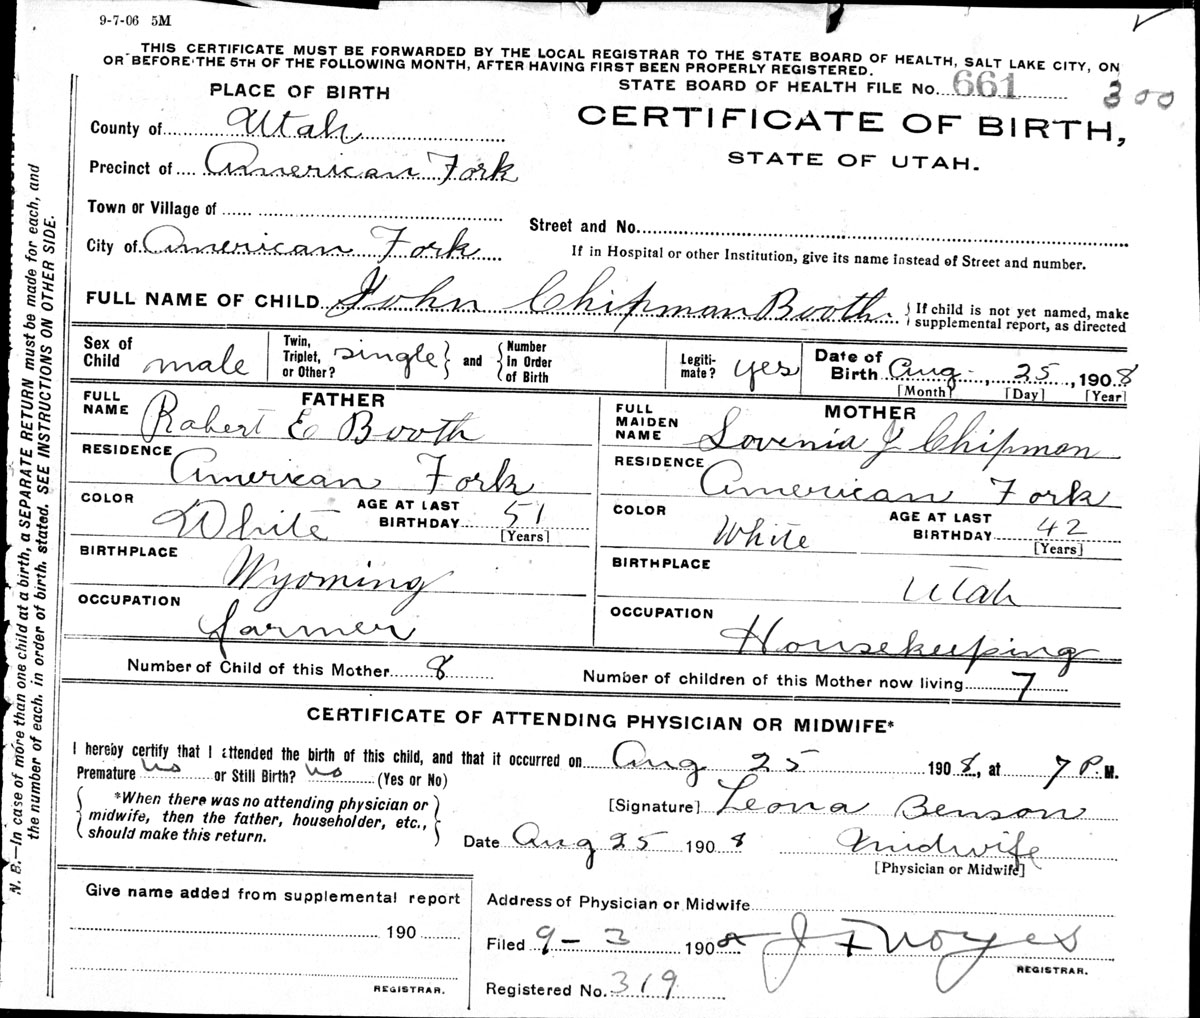 9-7-06 5M
THIS CERTIFICATE MUST BE FORWARDED BY THE LOCAL REGISTRAR TO THE STATE BOARD OF HEALTH, SALT LAKE CITY, ON
OR BEFORE THE 5TH OF THE FOLLOWING MONTH, AFTER HAVING FIRST BEEN PROPERLY REGISTERED.
STATE BOARD OF HEALTH FILE No. 661 300
PLACE OF BIRTH
CERTIFICATE OF BIRTH,
STATE OF UTAH.
County of Utah
Precinct of American Fork
Town or Village of
Street and No.
City of American Fork
If in Hospital or other Institution, give its name instead of Street and number.
FULL NAME OF CHILD John Chipman Booth
If child is not yet named, make
supplemental report, as directed
Sex of
Child male
Twin,
Triplet,
or Other? single
and
Number
in Order
of Birth
Legiti-
mate? yes
Date of
Birth Aug. 25, 1908
[Month] [Day] [Year]
FATHER
FULL
NAME Robert E Booth
RESIDENCE American Fork
COLOR White
AGE AT LAST
BIRTHDAY 51
[Years]
BIRTHPLACE Wyoming
OCCUPATION farmer
MOTHER
FULL
MAIDEN
NAME Lovenia J Chipman
RESIDENCE American Fork
COLOR White
AGE AT LAST
BIRTHDAY 42
[Years]
BIRTHPLACE Utah
OCCUPATION Housekeeping
Number of Child of this Mother 8
Number of children of this Mother now living 7
CERTIFICATE OF ATTENDING PHYSICIAN OR MIDWIFE*
I hereby certify that I attended the birth of this child, and that it occurred on Aug 25 1908, at 7 P. M.
Premature no or Still Birth? no (Yes or No)
*When there was no attending physician or
midwife, then the father, householder, etc.,
should make this return.
[Signature] Leona Benson
Date Aug 25 1908 Midwife
[Physician or Midwife]
Give name added from supplemental report
190
REGISTRAR.
Address of Physician or Midwife
Filed 9-3 1908 J F Noyes
REGISTRAR.
Registered No. 319
N. B.—In case of more than one child at a birth, a SEPARATE RETURN must be made for each, and
the number of each, in order of birth, stated. SEE INSTRUCTIONS ON OTHER SIDE.